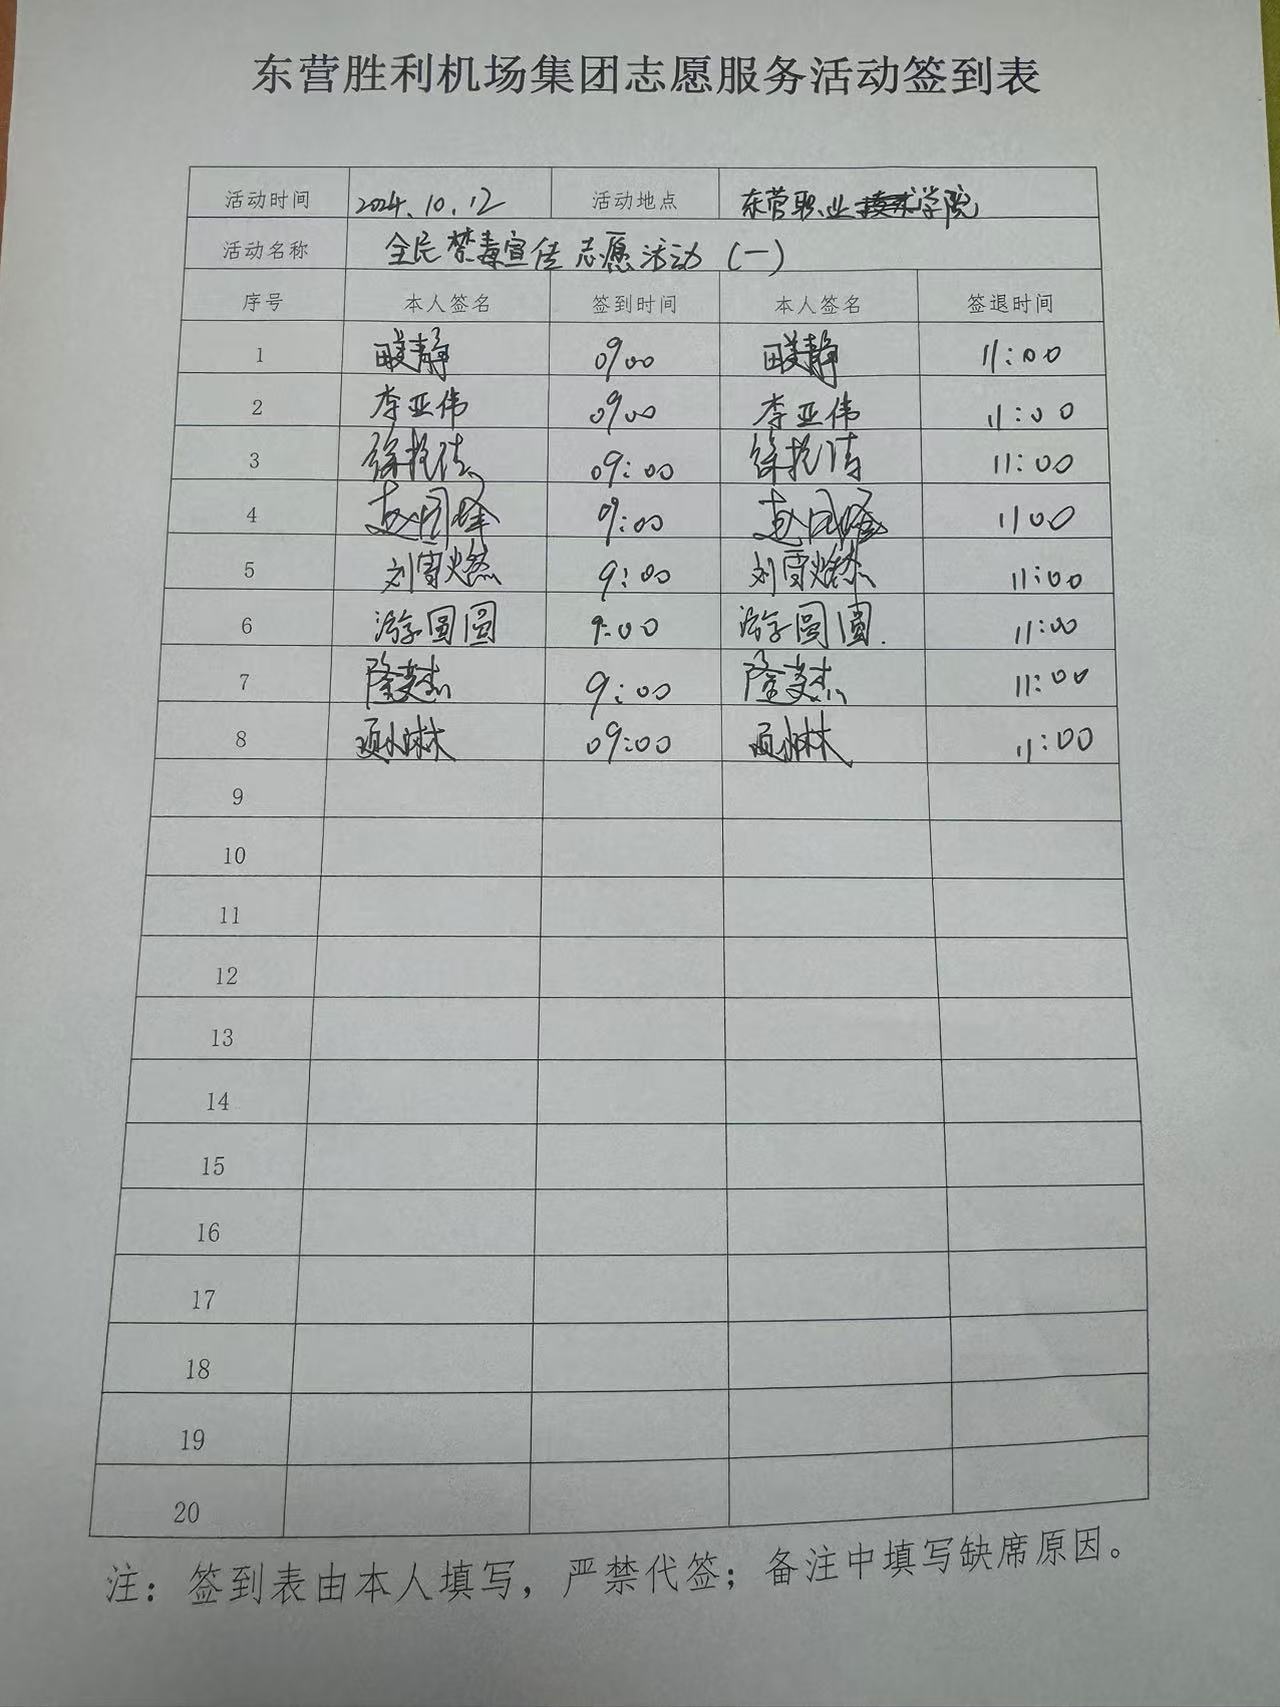 东营胜利机场集团志愿服务活动签到表
活动时间 2024.10.12 活动地点 东营职业学院
活动名称 全民禁毒宣传志愿活动（一）
序号 本人签名 签到时间 本人签名 签退时间
1 田美静 0900 田美静 11:00
2 李亚伟 0900 李亚伟 11:00
3 09:00 11:00
4 9:00 1100
5 刘雪燃 9:00 刘雪燃 11:00
6 游圆圆 9:00 游圆圆 11:00
7 隆英杰 9:00 隆英杰 11:00
8 09:00 11:00
9
10
11
12
13
14
15
16
17
18
19
20
注：签到表由本人填写，严禁代签；备注中填写缺席原因。